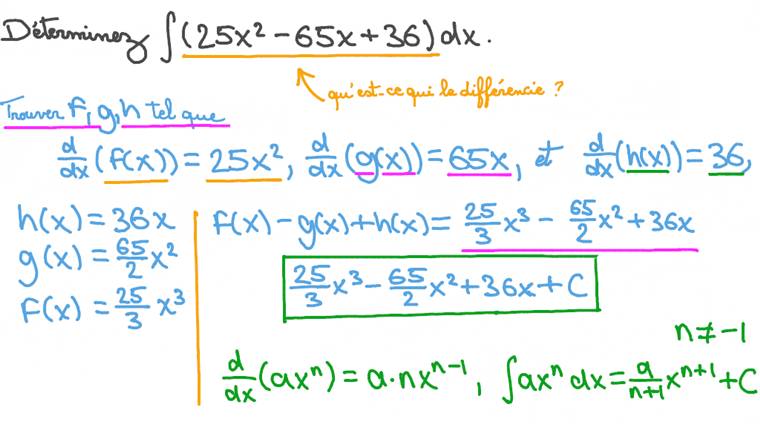 Déterminez ∫(25x² − 65x + 36) dx.
qu'est-ce qui le différencie ?
Trouver f, g, h tel que
d/dx (f(x)) = 25x², d/dx (g(x)) = 65x, et d/dx (h(x)) = 36,
h(x) = 36x
g(x) = 65/2 x²
f(x) = 25/3 x³
f(x) − g(x) + h(x) = 25/3 x³ − 65/2 x² + 36x
25/3 x³ − 65/2 x² + 36x + C
n ≠ −1
d/dx (axⁿ) = a·nxⁿ⁻¹, ∫axⁿ dx = a/(n+1) xⁿ⁺¹ + C